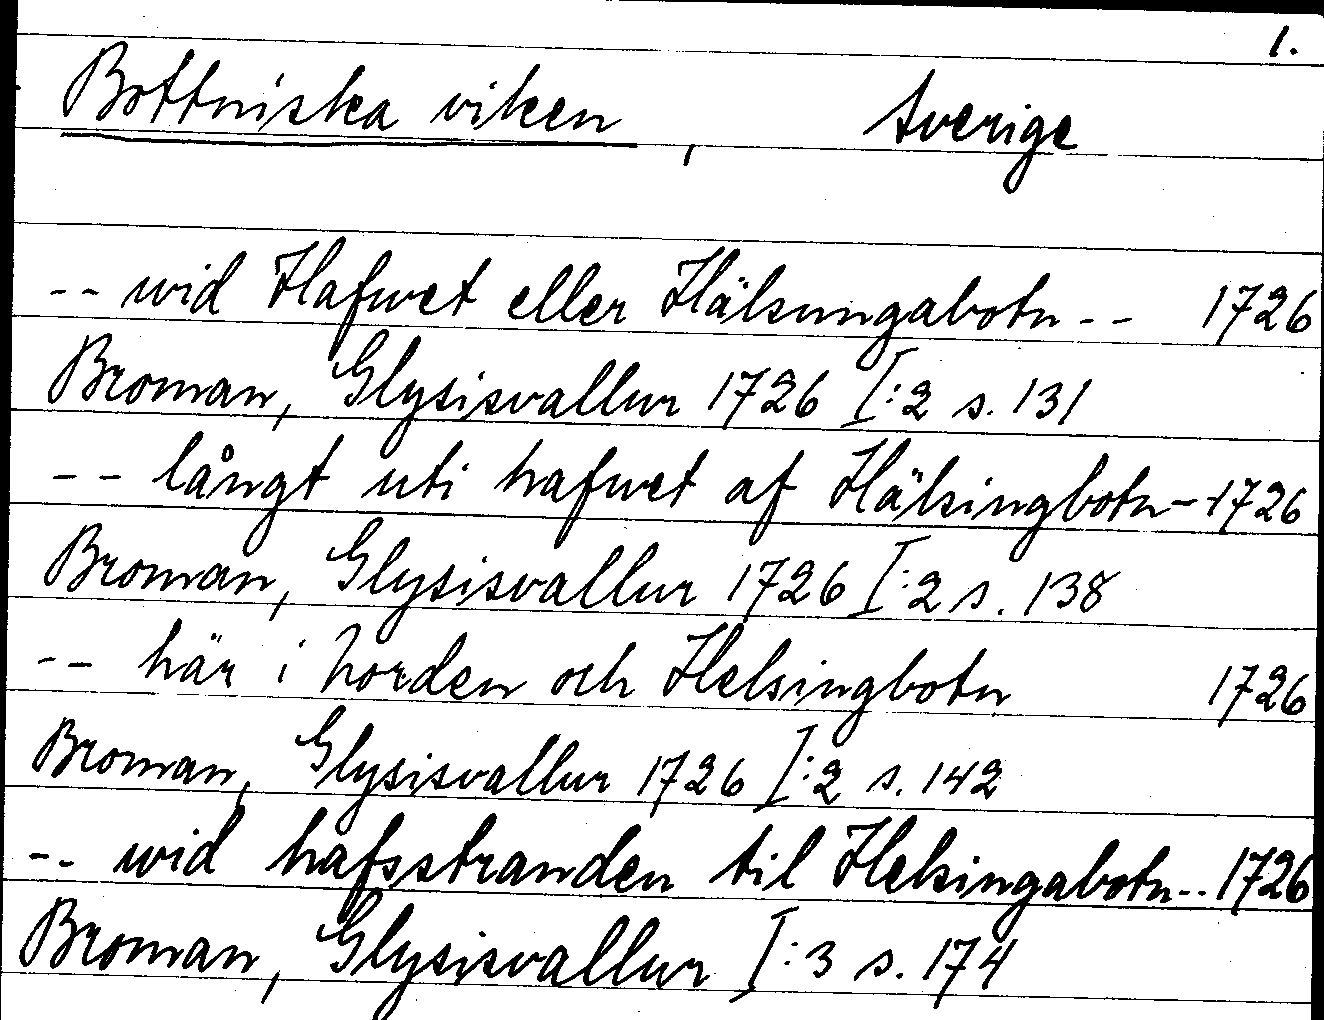 1.
Bottniska viken, Sverige
-- wid Hafwet eller Hälsungabotn -- 1726
Broman, Glysisvallur 1726 I:2 s. 131
-- långt uti hafwet af Hälsingbotn -- 1726
Broman, Glysisvallur 1726 I:2 s. 138
-- här i Norden och Helsingbotn 1726
Broman, Glysisvallur 1726 I:2 s. 142
-- wid hafsstranden til Helsingabotn -- 1726
Broman, Glysisvallur I:3 s. 174